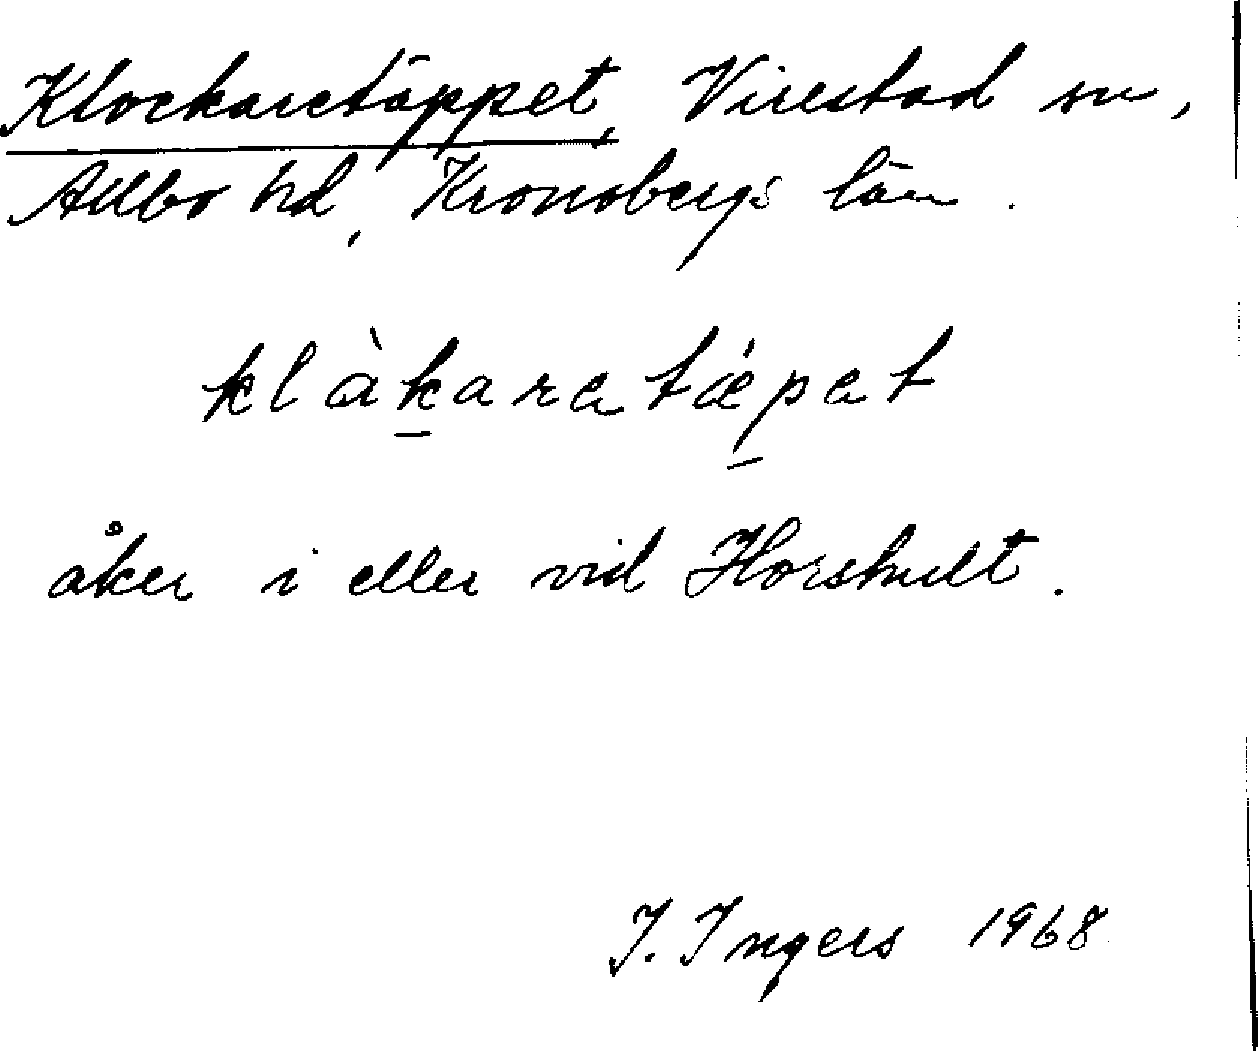 Klockaretäppet, Virestad sn,
Allbo hd, Kronobergs län.
klàkaratǽpat
åker i eller vid Horshult.
I. Ingers 1968